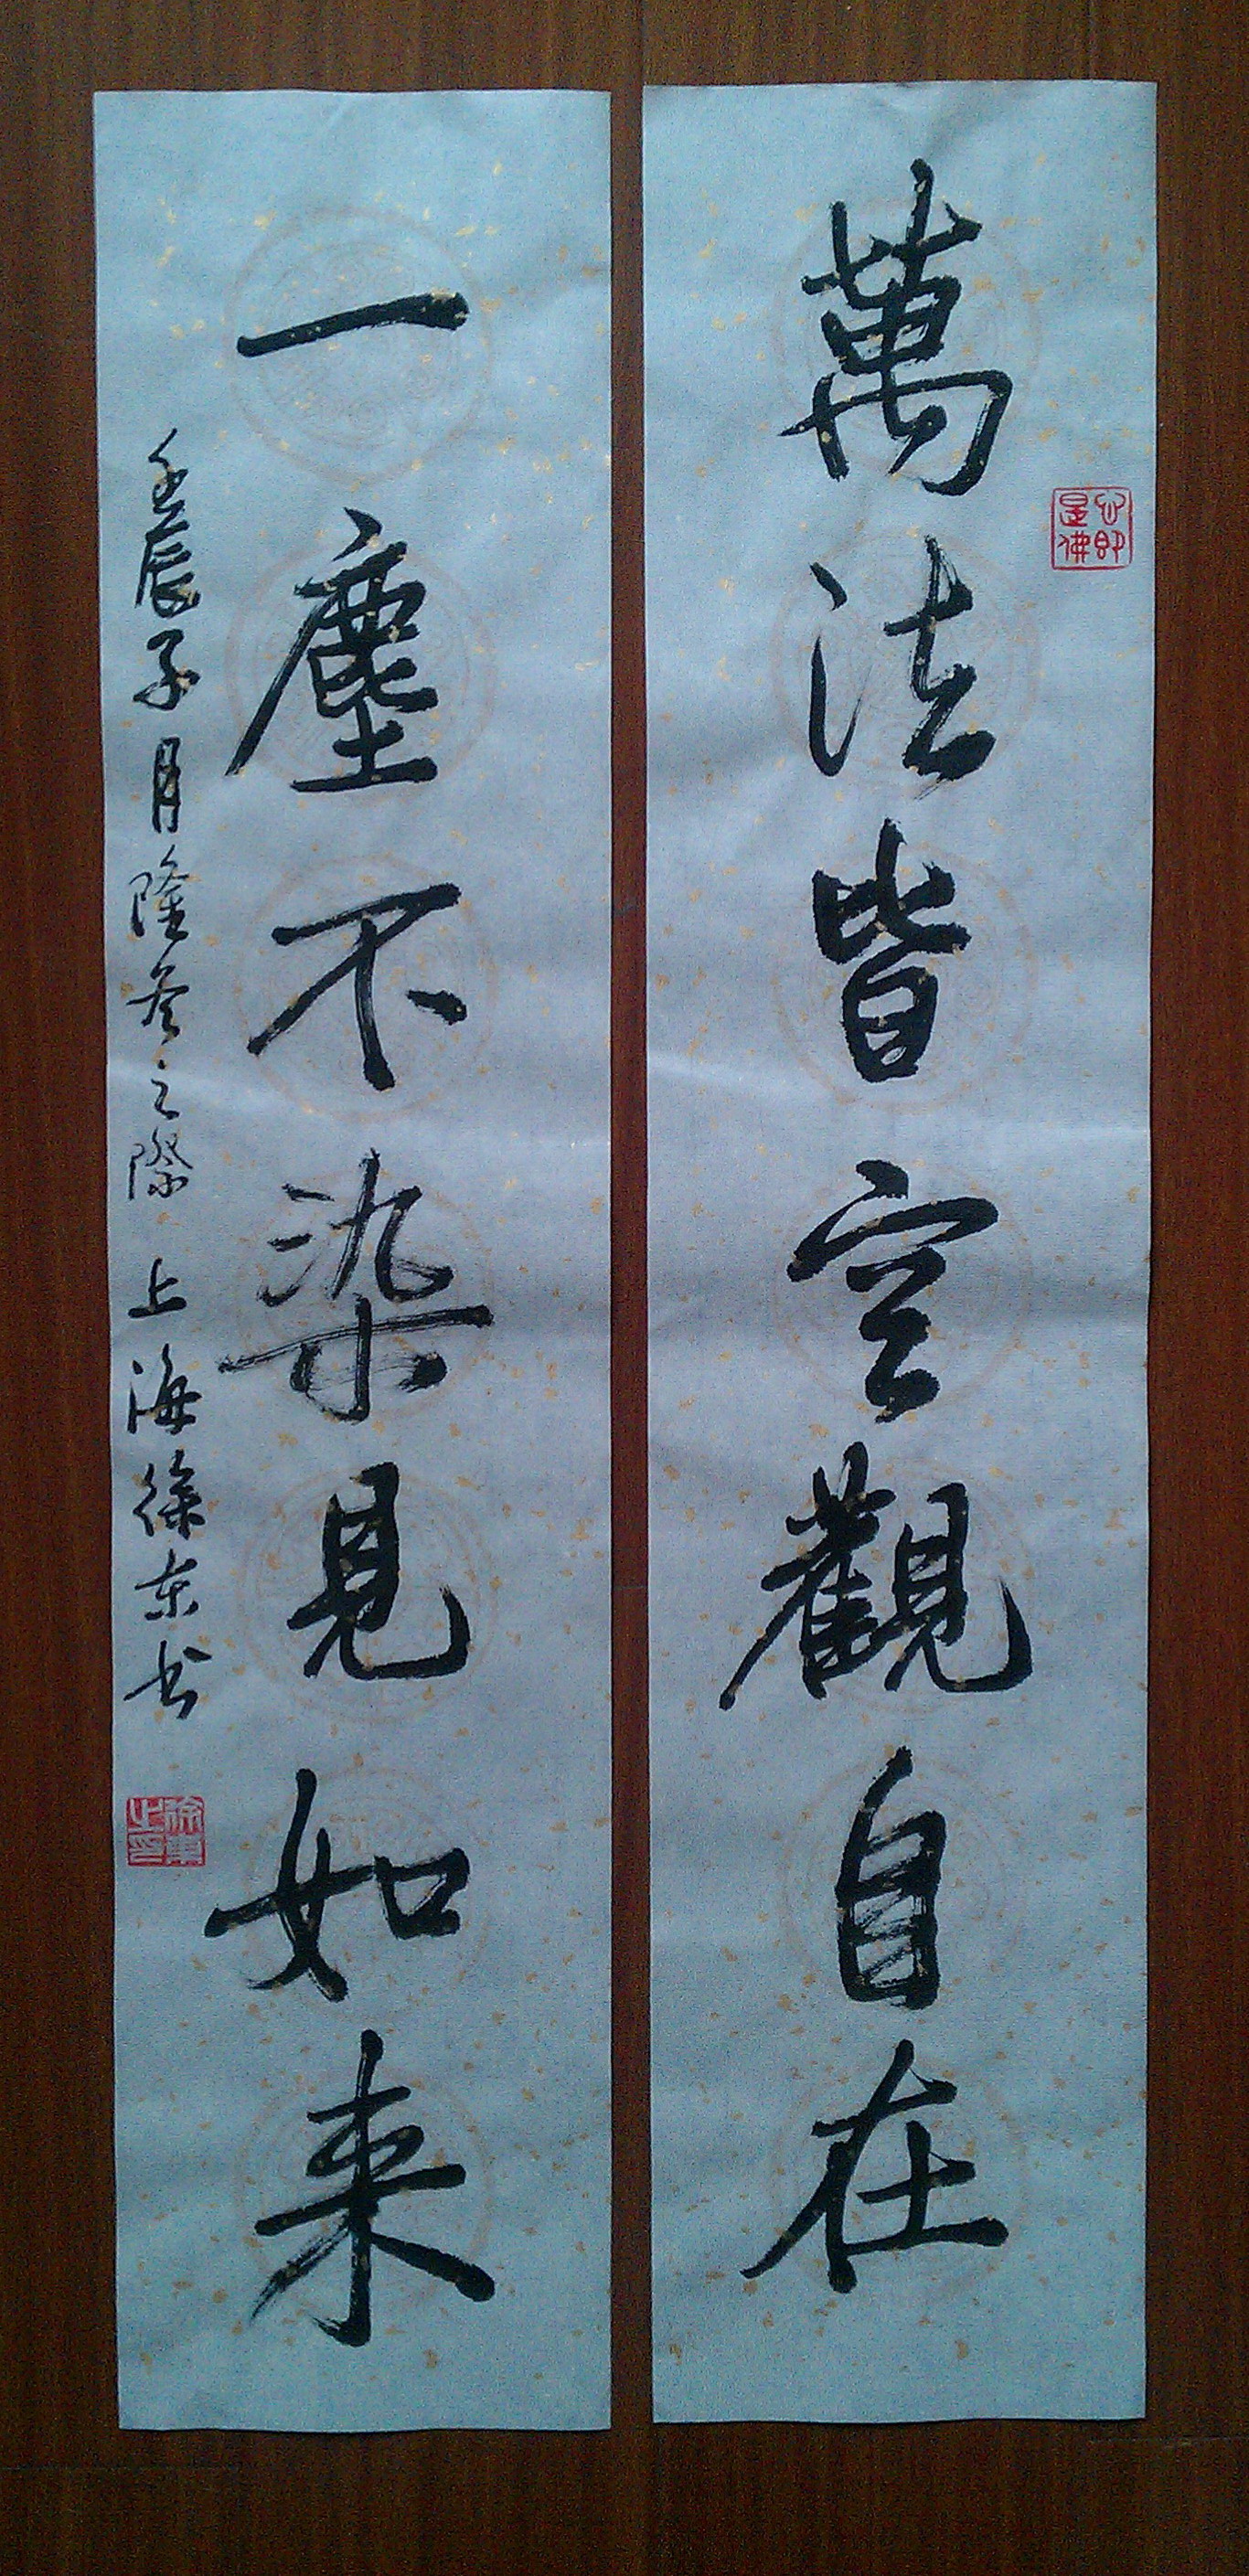 萬法皆空觀自在
心即是佛
一塵不染見如来
壬辰子月隆冬之際上海徐东书
徐東之印